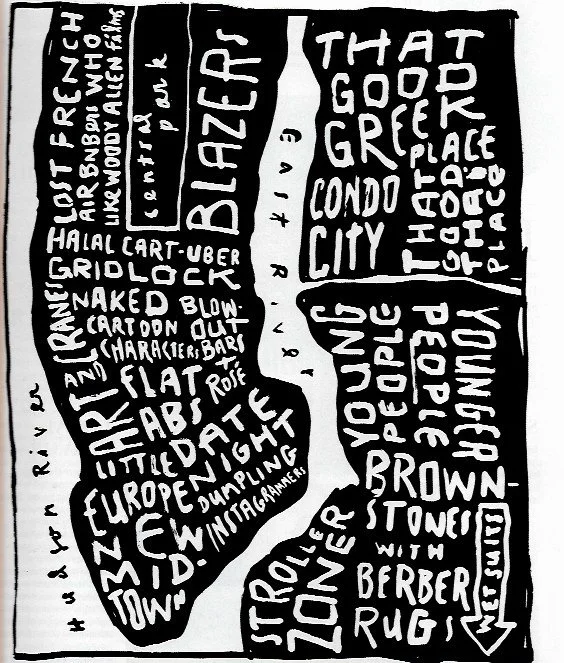 LOST FRENCH
AIRBNBERS WHO
LIKE WOODY ALLEN films
central
park
BLAZERS
HALAL CART-UBER
GRIDLOCK
NAKED
CARTOON
CHARACTERS
BLOW-
OUT
BARS
+
ROSÉ
ART AND CRANES
FLAT
ABS
LITTLE
EUROPE
DATE
NIGHT
DUMPLING
INSTAGRAMMERS
"NEW
MID-
TOWN"
Hudson River
East River
THAT
GOOD
GREEK
PLACE
CONDO
CITY
THAT
GOOD
THAI
PLACE
YOUNG
PEOPLE
YOUNGER
PEOPLE
BROWN-
STONES
WITH
BERBER
RUGS
STROLLER
ZONE
WETSUITS